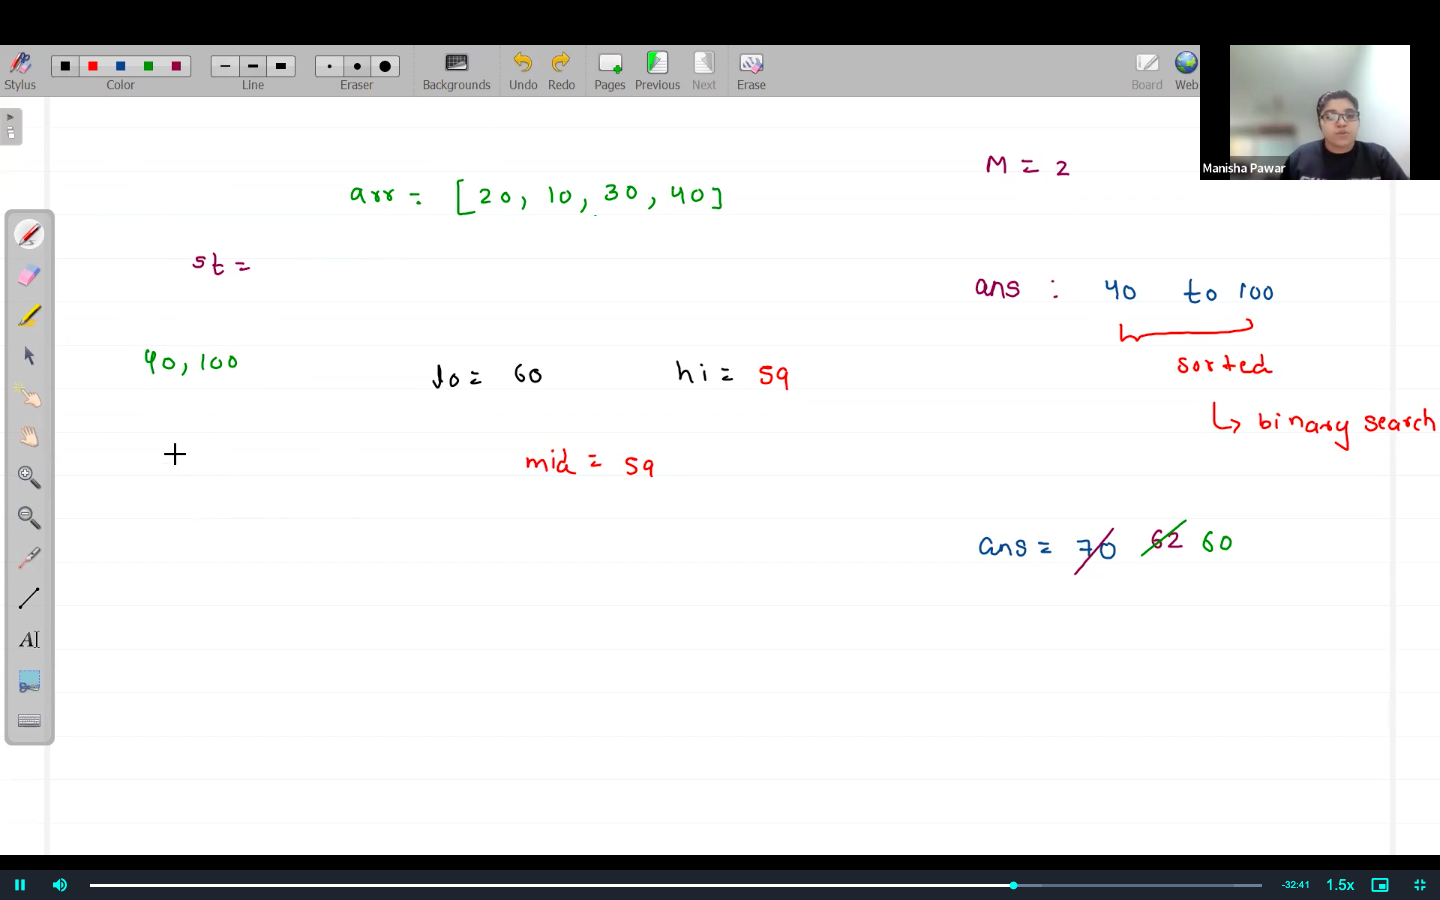 Stylus Color Line Eraser Backgrounds Undo Redo Pages Previous Next Erase Board Web
Manisha Pawar
M = 2
arr = [20, 10, 30, 40]
st =
ans : 40 to 100
sorted
40, 100
lo = 60 hi = 59
↳ binary search
mid = 59
ans = 70 62 60
AI
-32:41 1.5x